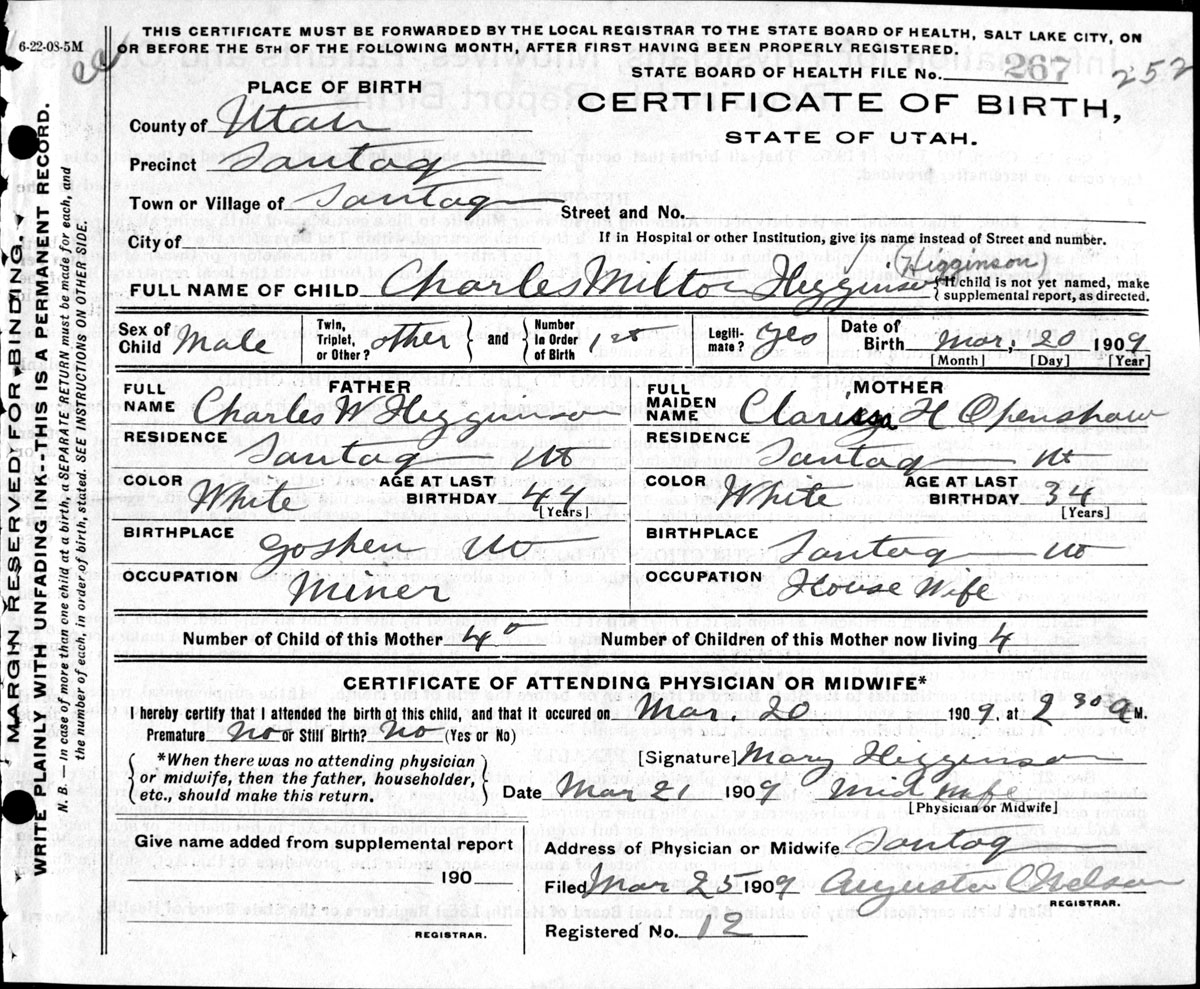 6-22-08-5M
THIS CERTIFICATE MUST BE FORWARDED BY THE LOCAL REGISTRAR TO THE STATE BOARD OF HEALTH, SALT LAKE CITY, ON
OR BEFORE THE 5TH OF THE FOLLOWING MONTH, AFTER FIRST HAVING BEEN PROPERLY REGISTERED.
STATE BOARD OF HEALTH FILE No. 267 252
PLACE OF BIRTH
CERTIFICATE OF BIRTH,
STATE OF UTAH.
County of Utah
Precinct Santaq
Town or Village of Santaq Street and No.
City of If in Hospital or other Institution, give its name instead of Street and number.
(Higginson)
FULL NAME OF CHILD Charles Milton Higginson {If child is not yet named, make
supplemental report, as directed.
Sex of Child Male Twin, Triplet, or Other? other and Number in Order of Birth 1st Legitimate? Yes Date of Birth Mar. 20 1909
[Month] [Day] [Year]
FATHER
FULL NAME Charles W Higginson
RESIDENCE Santaq Ut
COLOR White AGE AT LAST BIRTHDAY 44
[Years]
BIRTHPLACE Goshen Ut
OCCUPATION Miner
MOTHER
FULL MAIDEN NAME Clarissa H Openshaw
RESIDENCE Santaq Ut
COLOR White AGE AT LAST BIRTHDAY 34
[Years]
BIRTHPLACE Santaq Ut
OCCUPATION House Wife
Number of Child of this Mother 4 Number of Children of this Mother now living 4
CERTIFICATE OF ATTENDING PHYSICIAN OR MIDWIFE*
I hereby certify that I attended the birth of this child, and that it occured on Mar. 20 1909, at 2 30 a M.
Premature No or Still Birth? No (Yes or No)
*When there was no attending physician
or midwife, then the father, householder,
etc., should make this return.
[Signature] Mary Higginson
Date Mar 21 1909 Mid Wife
[Physician or Midwife]
Give name added from supplemental report
190
REGISTRAR.
Address of Physician or Midwife Santaq
Filed Mar 25 1909 August C Nelson
REGISTRAR.
Registered No. 12
MARGIN RESERVED FOR BINDING
WRITE PLAINLY WITH UNFADING INK--THIS IS A PERMANENT RECORD.
N. B. — In case of more than one child at a birth, SEPARATE RETURN must be made for each, and
the number of each, in order of birth, stated. SEE INSTRUCTIONS ON OTHER SIDE.